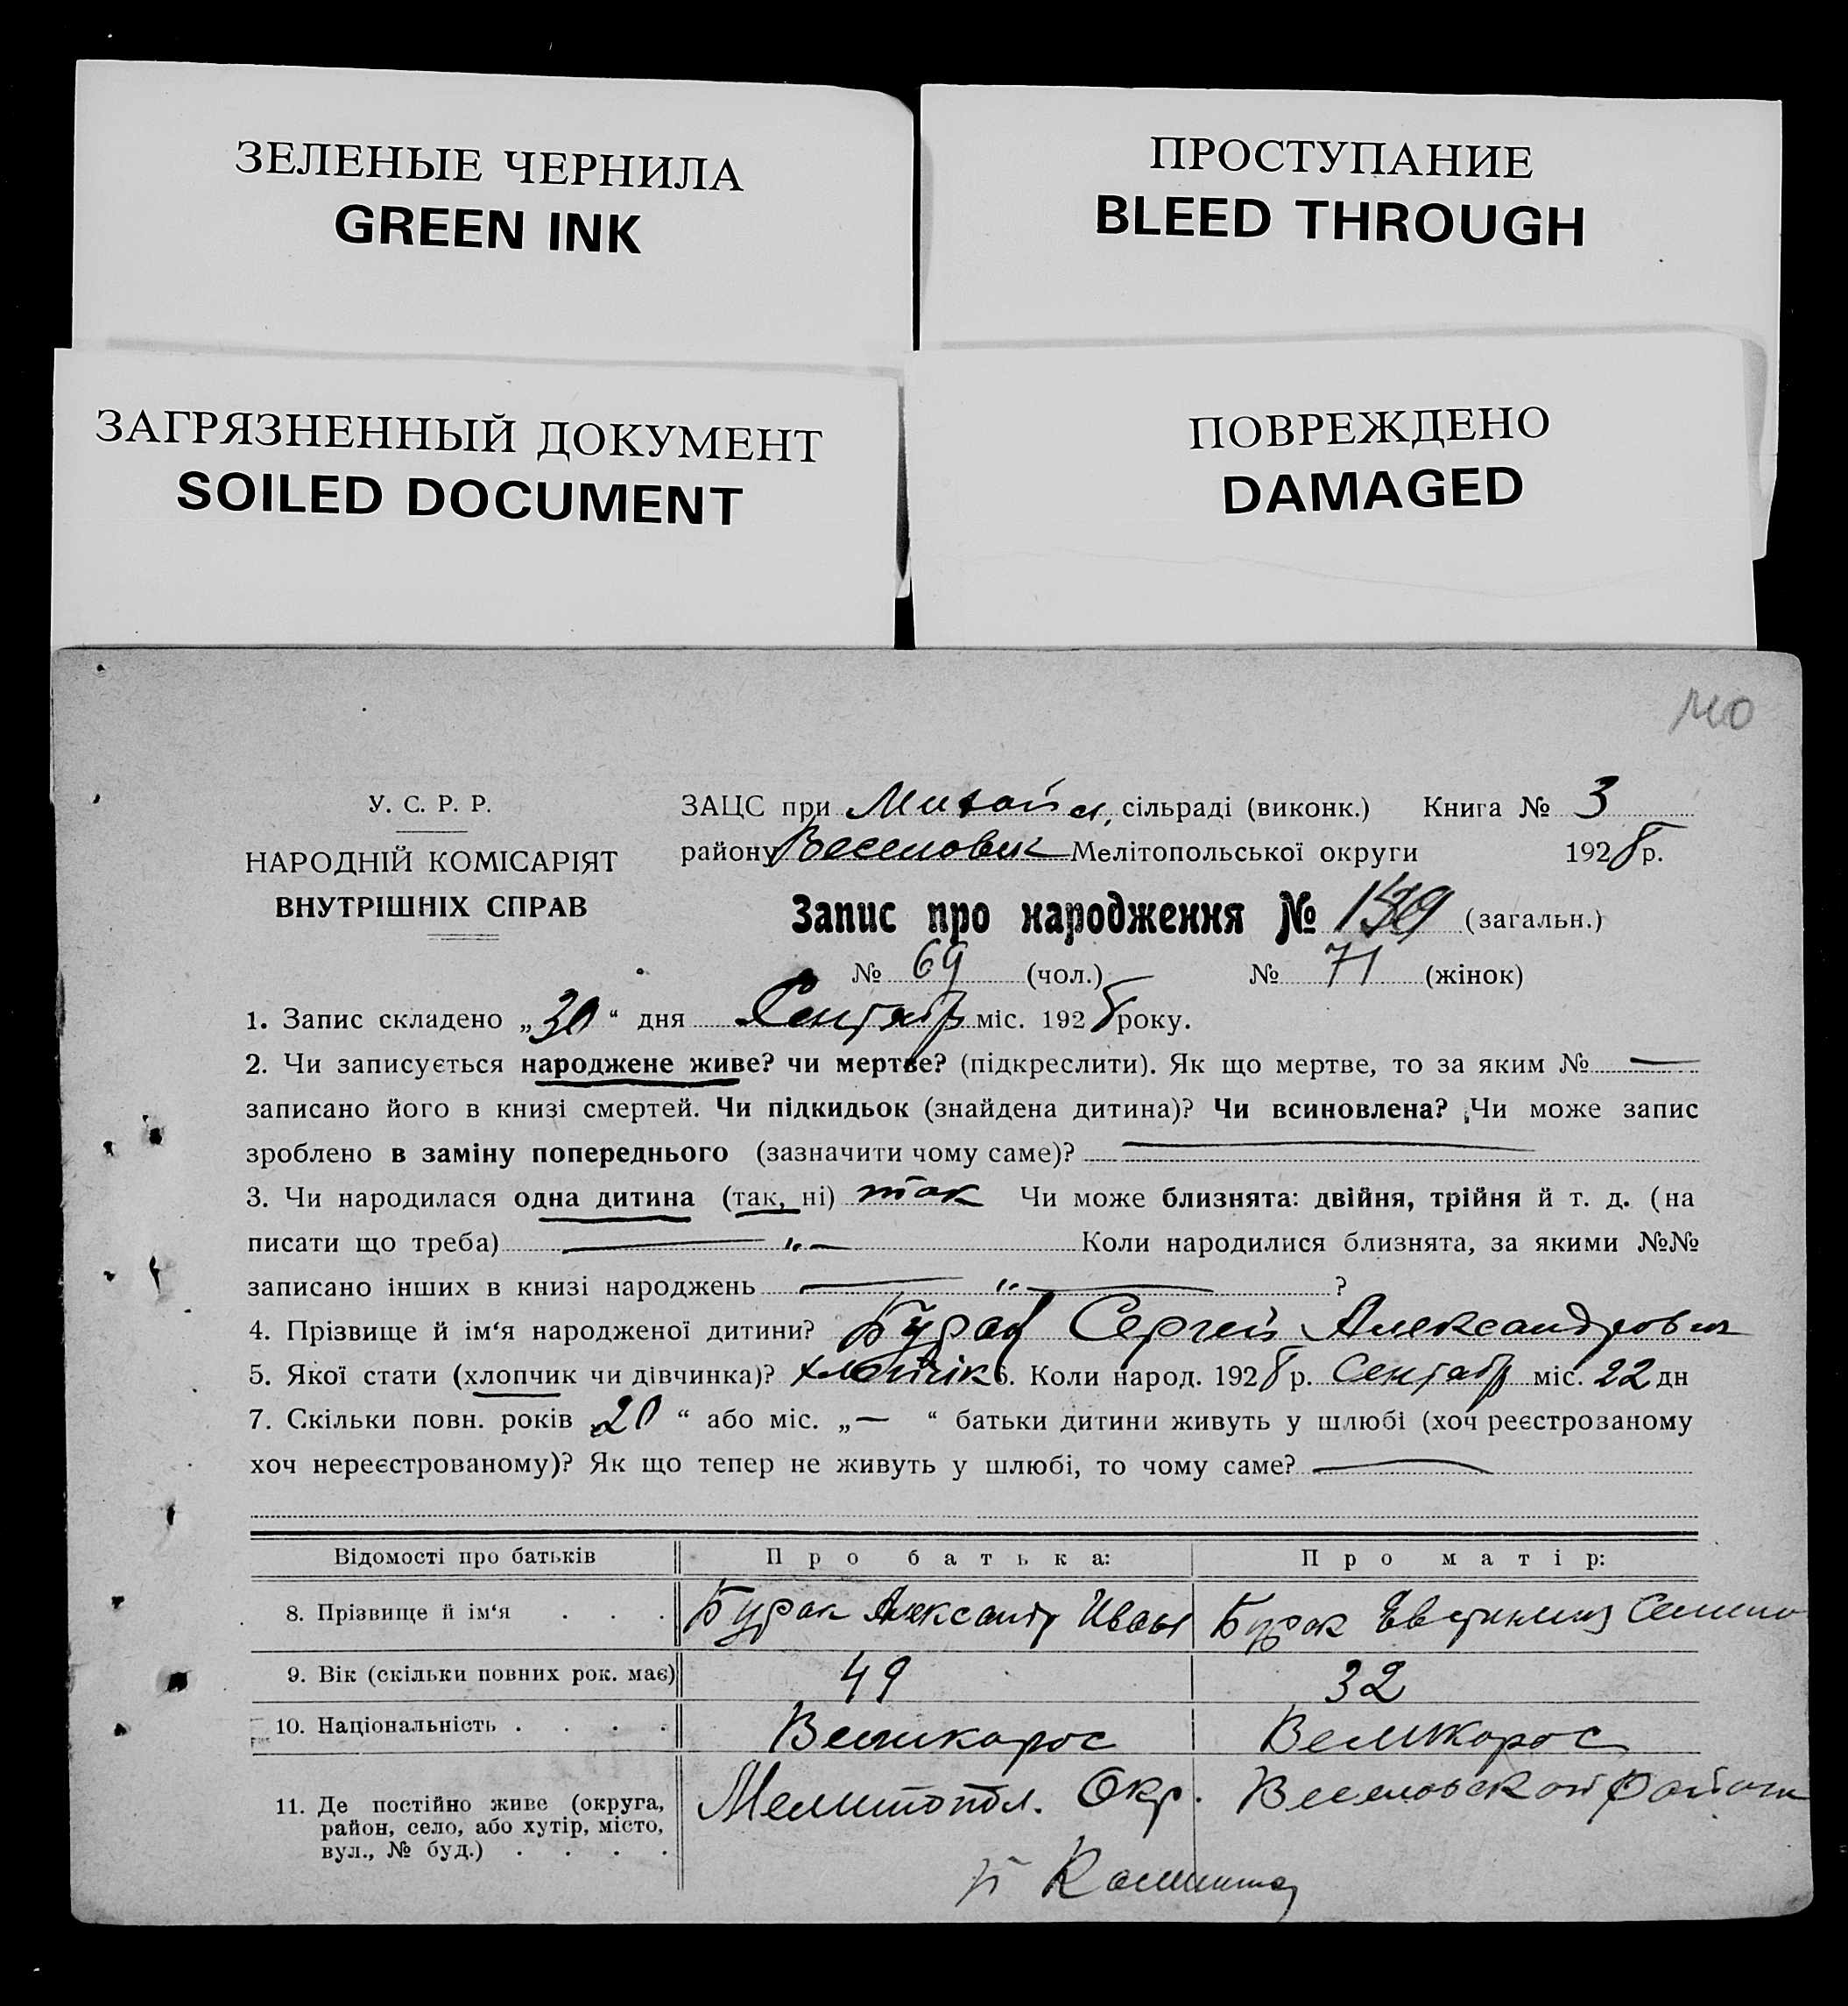 ЗЕЛЕНЫЕ ЧЕРНИЛА
GREEN INK
ПРОСТУПАНИЕ
BLEED THROUGH
ЗАГРЯЗНЕННЫЙ ДОКУМЕНТ
SOILED DOCUMENT
ПОВРЕЖДЕНО
DAMAGED
У. С. Р. Р.
НАРОДНІЙ КОМІСАРІЯТ
ВНУТРІШНІХ СПРАВ
ЗАЦС при сільраді (виконк.) Книга № 3
району Веселовск Мелітопольської округи 1928 р.
Запис про народження № (загальн.)
№ 69 (чол.) № 71 (жінок)
1. Запис складено „30“ дня Сентябр міс. 1928 року.
2. Чи записується народжене живе? чи мертве? (підкреслити). Як що мертве, то за яким № —
записано його в книзі смертей. Чи підкидьок (знайдена дитина)? Чи всиновлена? Чи може запис
зроблено в заміну попереднього (зазначити чому саме)? —
3. Чи народилася одна дитина (так, ні) так Чи може близнята: двійня, трійня й т. д. (на
писати що треба) — „ — Коли народилися близнята, за якими №№
записано інших в книзі народжень — „ — ?
4. Прізвище й ім‘я народженої дитини? Бурак Сергей Александрович
5. Якої стати (хлопчик чи дівчинка)? 6. Коли народ. 1928 р. Сентябр міс. 22 дн
7. Скільки повн. років „20“ або міс. „—“ батьки дитини живуть у шлюбі (хоч реєстрозаному
хоч нереєстрованому)? Як що тепер не живуть у шлюбі, то чому саме? —
Відомості про батьків Про батька: Про матір:
8. Прізвище й ім‘я . . . Бурак Александр Иван Бурак Семено
9. Вік (скільки повних рок. має) 49 32
10. Національність . . . . Великорос Великорос
11. Де постійно живе (округа,
район, село, або хутір, місто,
вул., № буд.) . . . .
Мелитопол. Окр. Веселовской района